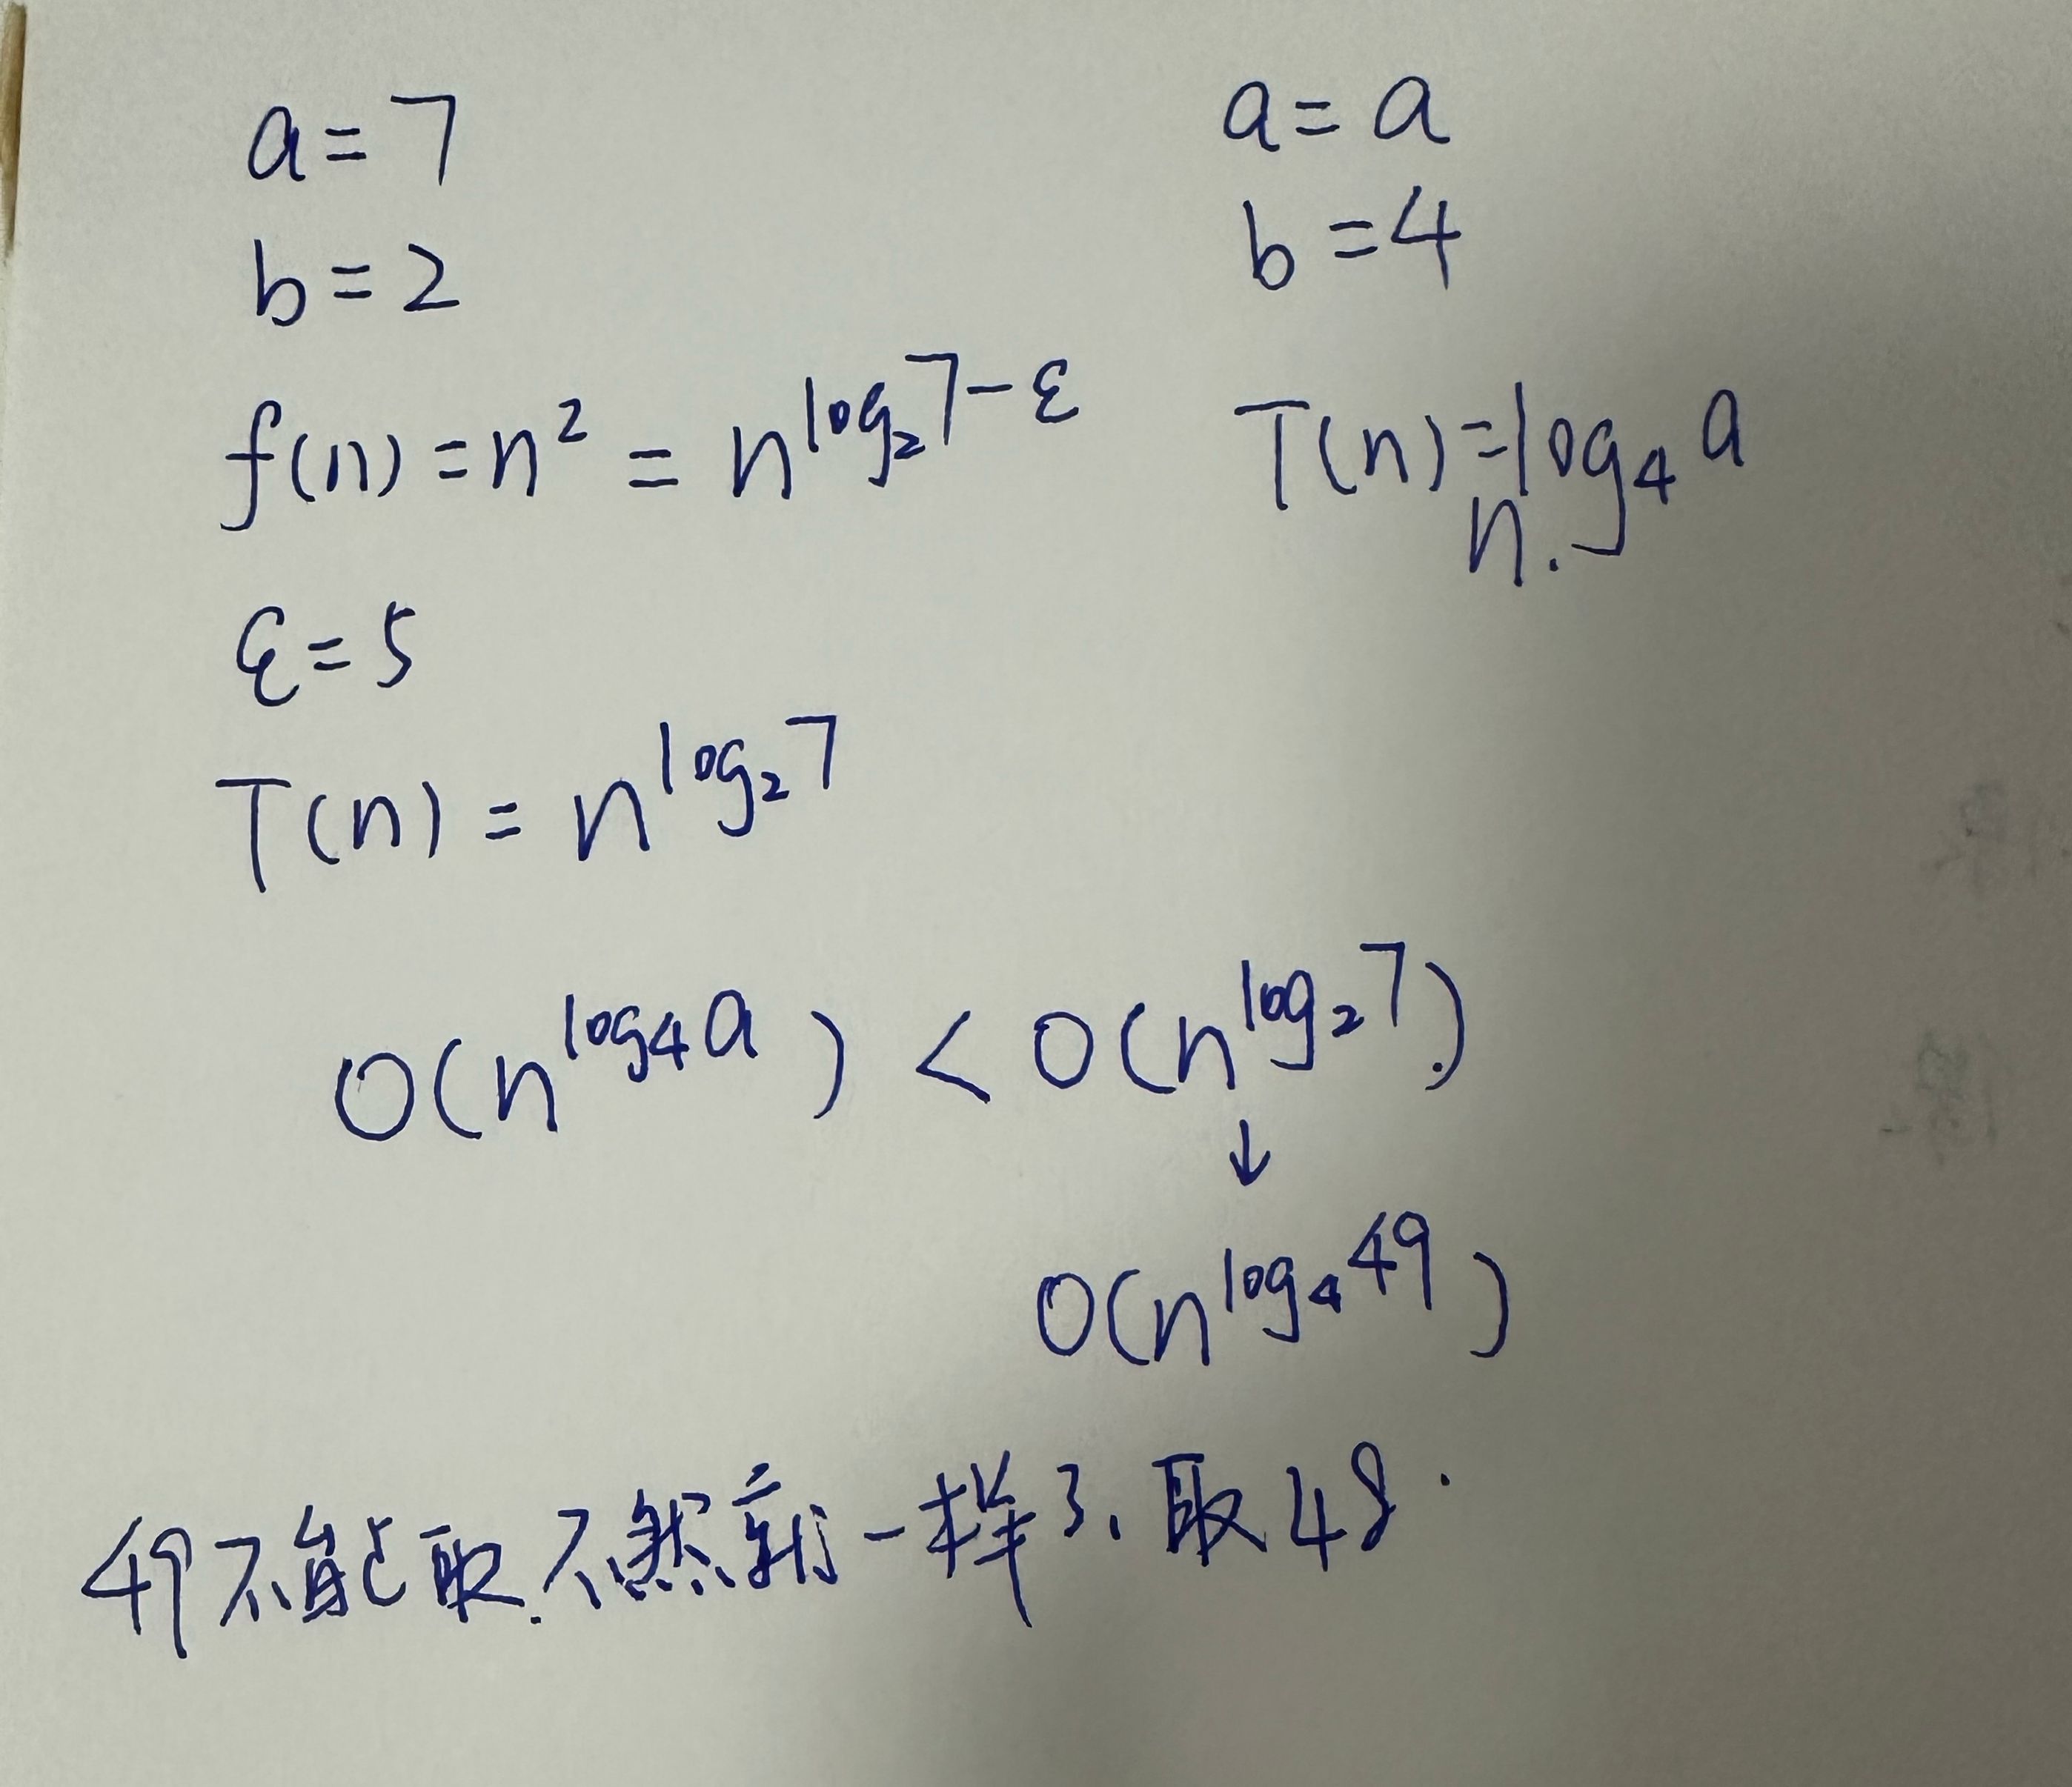 a=7
b=2
f(n)=n² = n^log₂7-ε
ε=5
T(n) = n^log₂7
a=a
b=4
T(n)=log₄a
n.
O(n^log₄a) < O(n^log₂7.)
↓
O(n^log₄49)
49不能取.不然就一样了、取48.